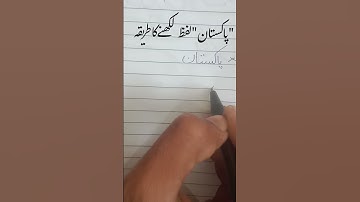 "پاکستان" لفظ لکھنے کا طریقہ
× پاکستان